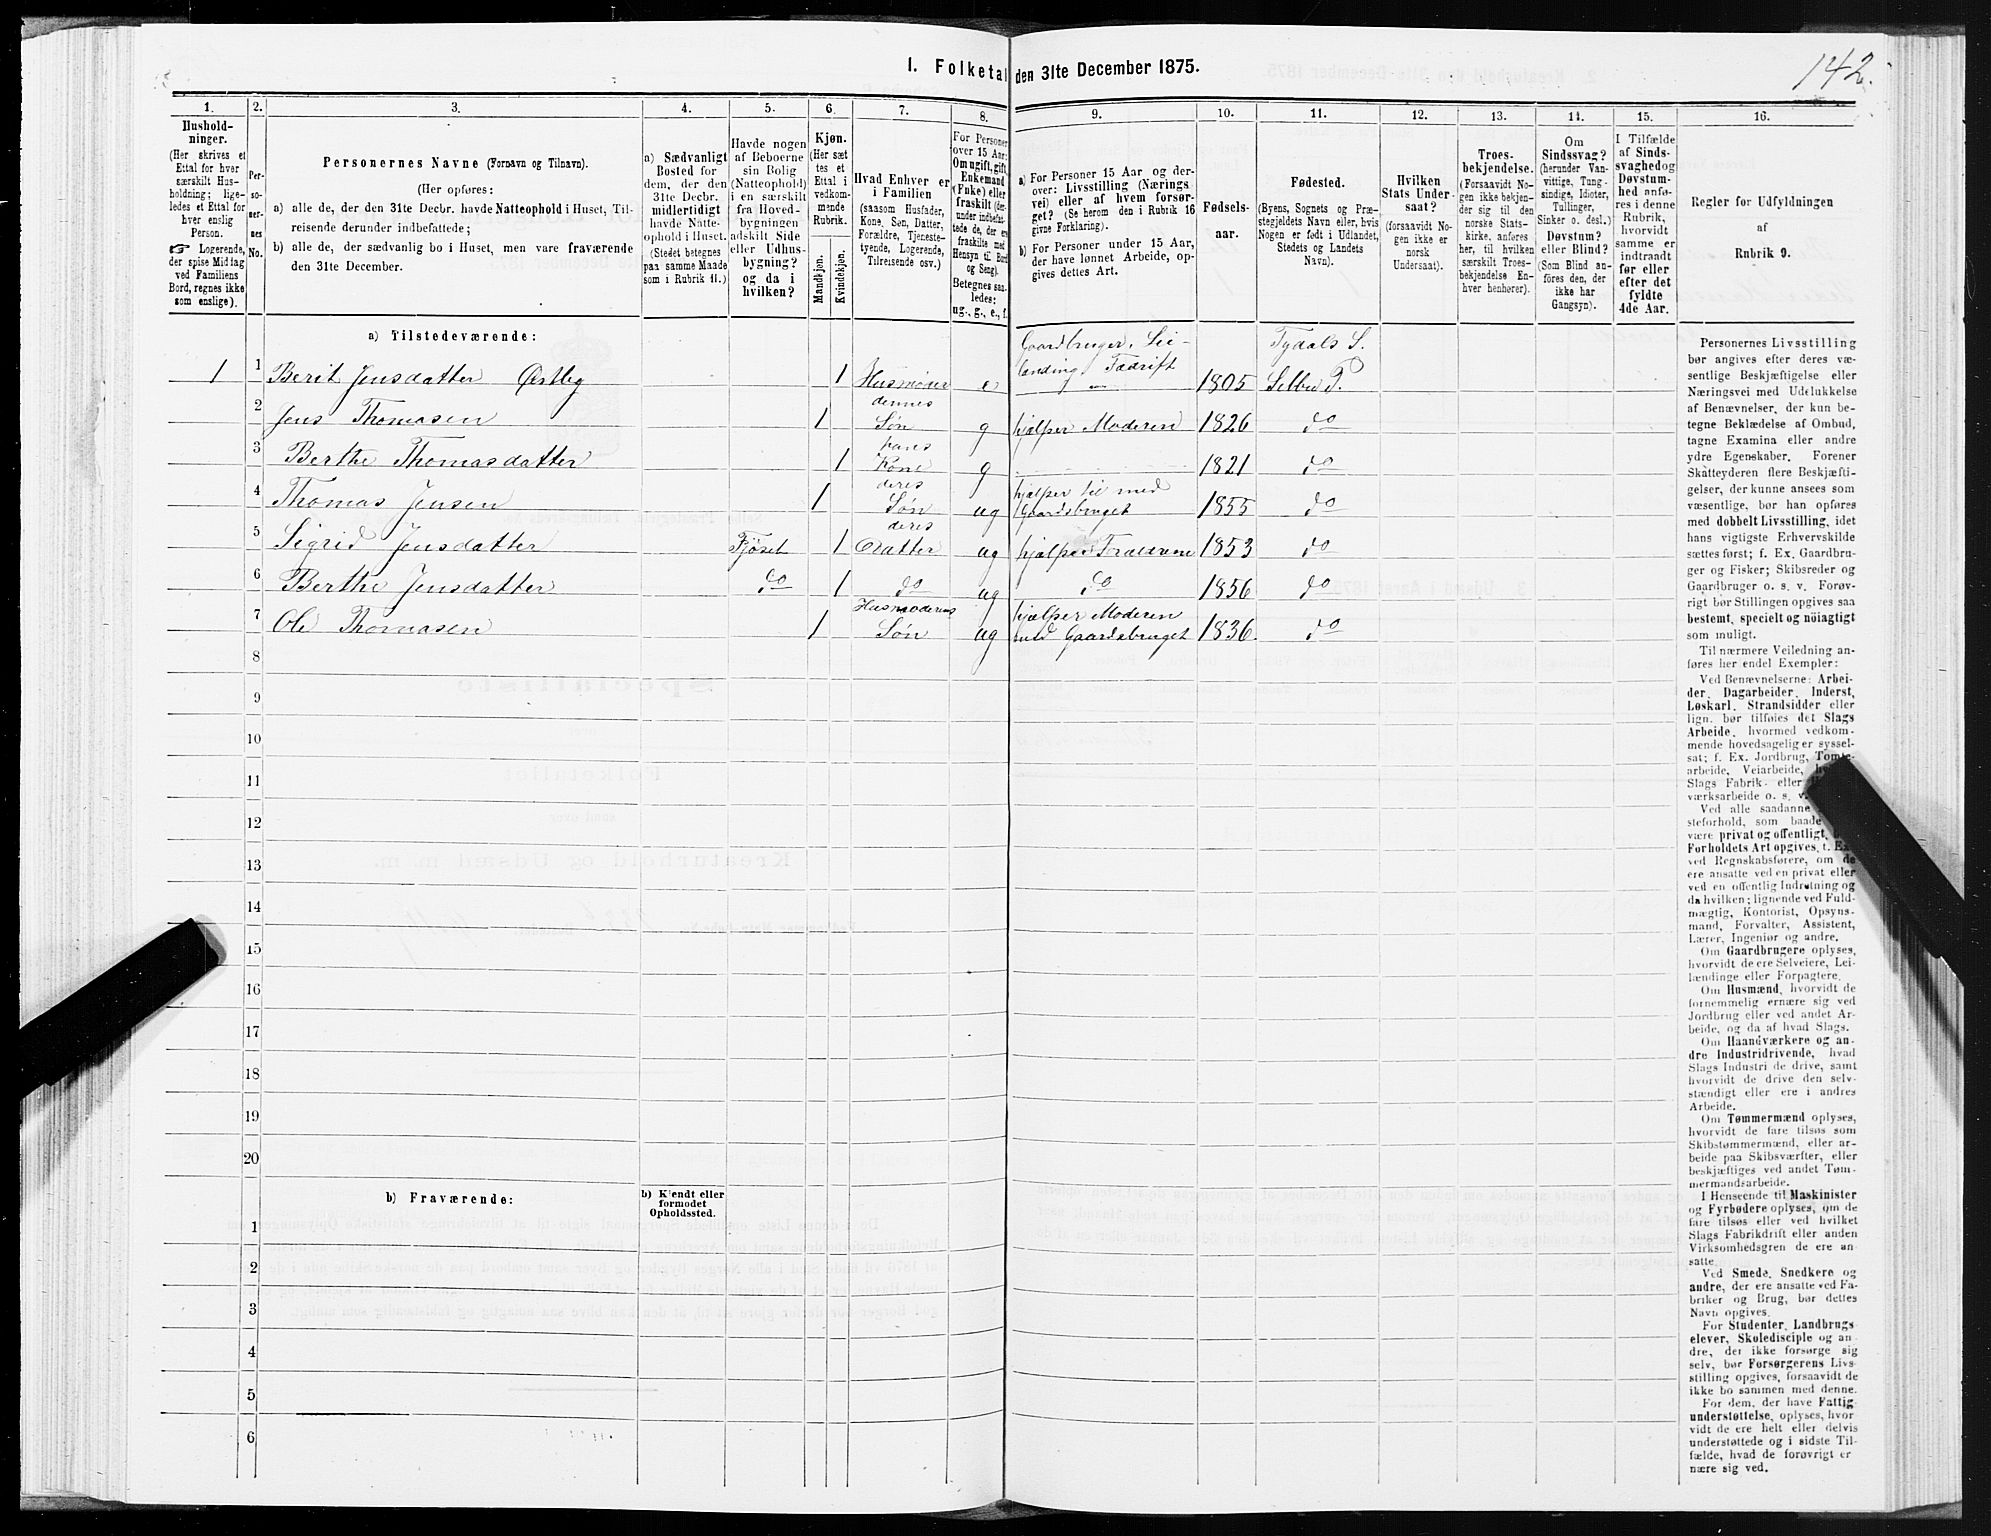 I. Folketal den 31te December 1875.
142.
1.
2.
3.
4.
5.
6.
7.
8.
9.
10.
11.
12.
13.
14.
15.
16.
Hushold-
ninger.
(Her skrives et
Ettal for hver
særskilt Hus-
holdning; lige-
ledes et Ettal for
hver enslig
Person.
☞ Logerende,
der spise Middag
ved Familiens
Bord, regnes ikke
som enslige).
Per-
so-
ner-
nes
No.
Personernes Navne (Fornavn og Tilnavn).
(Her opføres:
a) alle de, der den 31te Decbr. havde Natteophold i Huset, Til-
reisende derunder indbefattede;
b) alle de, der sædvanlig bo i Huset, men vare fraværende
den 31te December.
a) Sædvanligt
Bosted for
dem, der den
31te Decbr.
midlertidigt
havde Natte-
ophold i Huset.
(Stedet betegnes
paa samme Maade
som i Rubrik 11.)
Havde nogen
af Beboerne
sin Bolig
(Natteophold)
i en særskilt
fra Hoved-
bygningen
adskilt Side
eller Udhus-
bygning?
og da i
hvilken?
Kjøn.
(Her sæt
tes et
Ettal i
vedkom-
mende
Rubrik.
Mandkjøn.
Kvindekjøn.
Hvad Enhver er
i Familien
(saasom Husfader,
Kone, Søn, Datter,
Forældre, Tjeneste-
tyende, Logerende,
Tilreisende osv.)
For Personer
over 15 Aar:
Om ugift, gift,
Enkemand
(Enke) eller
fraskilt (der-
under indbefat-
tede de, der ere
fraskilte med
Hensyn til Bord
og Seng).
Betegnes saa-
ledes:
ug., g., e., f.
a) For Personer 15 Aar og der-
over: Livsstilling (Nærings
vei) eller af hvem forsør-
get? (Se herom den i Rubrik 16
givne Forklaring).
b) For Personer under 15 Aar,
der have lønnet Arbeide, op-
gives dettes Art.
Fødsels-
aar.
Fødested.
(Byens, Sognets og Præ-
stegjeldets Navn eller, hvis
Nogen er født i Udlandet,
Stedets og Landets
Navn).
Hvilken
Stats Under-
saat?
(forsaavidt No-
gen ikke er
norsk
Undersaat).
Troes-
bekjendelse.
(Forsaavidt No-
gen ikke bekjen-
der sig til den
norske Stats-
kirke, anføres
her, til hvilken
særskilt Troes-
bekjendelse En-
hver henhører).
Om
Sindssvag?
(herunder Van-
vittige, Tung-
sindige, Idioter,
Tullinger,
Sinker o. desl.)
Døvstum?
eller Blind?
(Som Blind an-
føres den, der
ikke har
Gangsyn).
I Tilfælde
af Sinds-
svaghed og
Døvstum-
hed anfø-
res i denne
Rubrik,
hvorvidt
samme er
indtraadt
før eller
efter det
fyldte
4de Aar.
Regler for Udfyldningen
af
Rubrik 9.
a) Tilstedeværende:
1 1 Berit Jensdatter Østby 1 Husmoder e Gaardbruger, Lei-
lænding Fædrift 1805 Tydals S.
Selbu P.
2 Jens Thomasen 1 dennes
Søn g hjælper Moderen 1826 do
3 Berthe Thomasdatter 1 hans
Kone g 1821 do
4 Thomas Jensen 1 deres
Søn ug hjælper til med
Gaardsbruget 1855 do
5 Sigrid Jensdatter Fjøset 1 deres
Datter ug hjælper Forældrene 1853 do
6 Berthe Jensdatter do 1 do ug do 1856 do
7 Ole Thomasen 1 Husmoderens
Søn ug hjælper Moderen
med Gaardsbruget 1836 do
8
9
10
11
12
13
14
15
16
17
18
19
20
b) Fraværende:
b) Kjendt eller
formodet
Opholdssted.
1
2
3
4
5
6
Personernes Livsstilling
bør angives efter deres væ-
sentlige Beskjæftigelse eller
Næringsvei med Udelukkelse
af Benævnelser, der kun be-
tegne Beklædelse af Ombud,
tagne Examina eller andre
ydre Egenskaber. Forener
Skatteyderen flere Beskjæfti-
gelser, der kunne ansees som
væsentlige, bør han opføres
med dobbelt Livsstilling, idet
hans vigtigste Erhvervskilde
sættes først; f. Ex. Gaardbru-
ger og Fisker; Skibsreder og
Gaardbruger o. s. v. Forøv-
rigt bør Stillingen opgives saa
bestemt, specielt og nöiagtigt
som muligt.
Til nærmere Veiledning an-
føres her endel Exempler:
Ved Benævnelserne: Arbei-
der, Dagarbeider, Inderst,
Løskarl, Strandsidder eller
lign. bør tilføies det Slags
Arbeide, hvormed vedkom-
mende hovedsagelig er syssel-
sat; f. Ex. Jordbrug, Tomte-
arbeide, Veiarbeide,
Slags Fabrik- eller
værksarbeide o. s. v.
Ved alle saadanne
steforhold, som baade
være privat og offentligt,
Forholdets Art opgives, t. Ex.
ved Regnskabsførere, om de
ere ansatte ved en privat eller
ved en offentlig Indretning og
da hvilken; lignende ved Fuld-
mægtig, Kontorist, Opsyns-
mand, Forvalter, Assistent,
Lærer, Ingeniør og andre.
Om Gaardbrugere oplyses,
hvorvidt de ere Selveiere, Lei-
lændinge eller Forpagtere.
Om Husmænd, hvorvidt de
fornemmelig ernære sig ved
Jordbrug eller ved andet Ar-
beide, og da af hvad Slags.
Om Haandværkere og an-
dre Industridrivende, hvad
Slags Industri de drive, samt
hvorvidt de drive den selv-
stændigt eller ere i andres
Arbeide.
Om Tømmermænd oplyses,
hvorvidt de fare tilsøs som
Skibstømmermænd, eller ar-
beide paa Skibsværfter, eller
beskjæftiges ved andet Tøm-
mermandsarbeide.
I Henseende til Maskinister
og Fyrbødere oplyses, om de
fare tilsøs eller ved hvilket
Slags Fabrikdrift eller anden
Virksomhedsgren de ere an-
satte.
Ved Smede, Snedkere og
andre, der ere ansatte ved Fa-
briker og Brug, bør dettes
Navn opgives.
For Studenter, Landbrugs-
elever, Skoledisciple og an-
dre, der ikke forsørge sig
selv, bør Forsørgerens Livs-
stilling opgives, forsaavidt de
ikke bo sammen med denne.
For dem, der have Fattig-
understøttelse, oplyses, hvor
vidt de ere helt eller delvis
understøttede og i sidste Til-
fælde, hvad de forøvrigt er
nære sig ved.